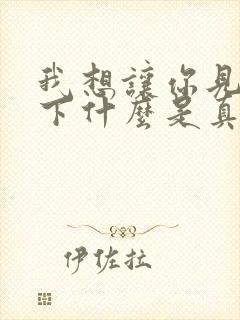 我想讓你見
下什麼是真
伊佐拉